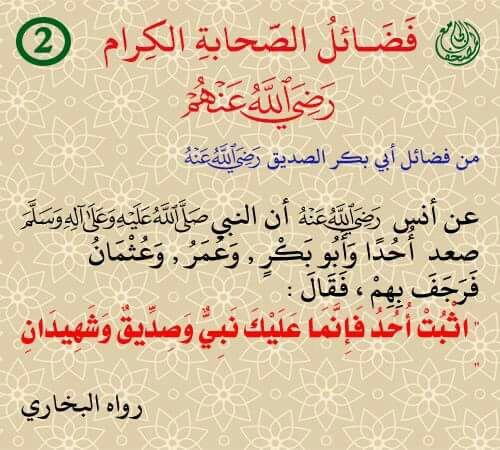 2
فَضَـائلُ الصّحابةِ الكِرام
رَضِيَ اللَّهُ عَنْهُمْ
من فضائل أبي بكر الصديق رَضِيَ اللَّهُ عَنْهُ
عن أنس رَضِيَ اللَّهُ عَنْهُ أن النبي صَلَّى اللَّهُ عَلَيْهِ وَعَلَى آلِهِ وَسَلَّمَ
صعد أُحُدًا وَأَبُو بَكْرٍ , وَعُمَرُ , وَعُثْمَانُ
فَرَجَفَ بِهِمْ ، فَقَالَ :
" اثْبُتْ أُحُدُ فَإِنَّمَا عَلَيْكَ نَبِيٌّ وَصِدِّيقٌ وَشَهِيدَانِ
"
رواه البخاري